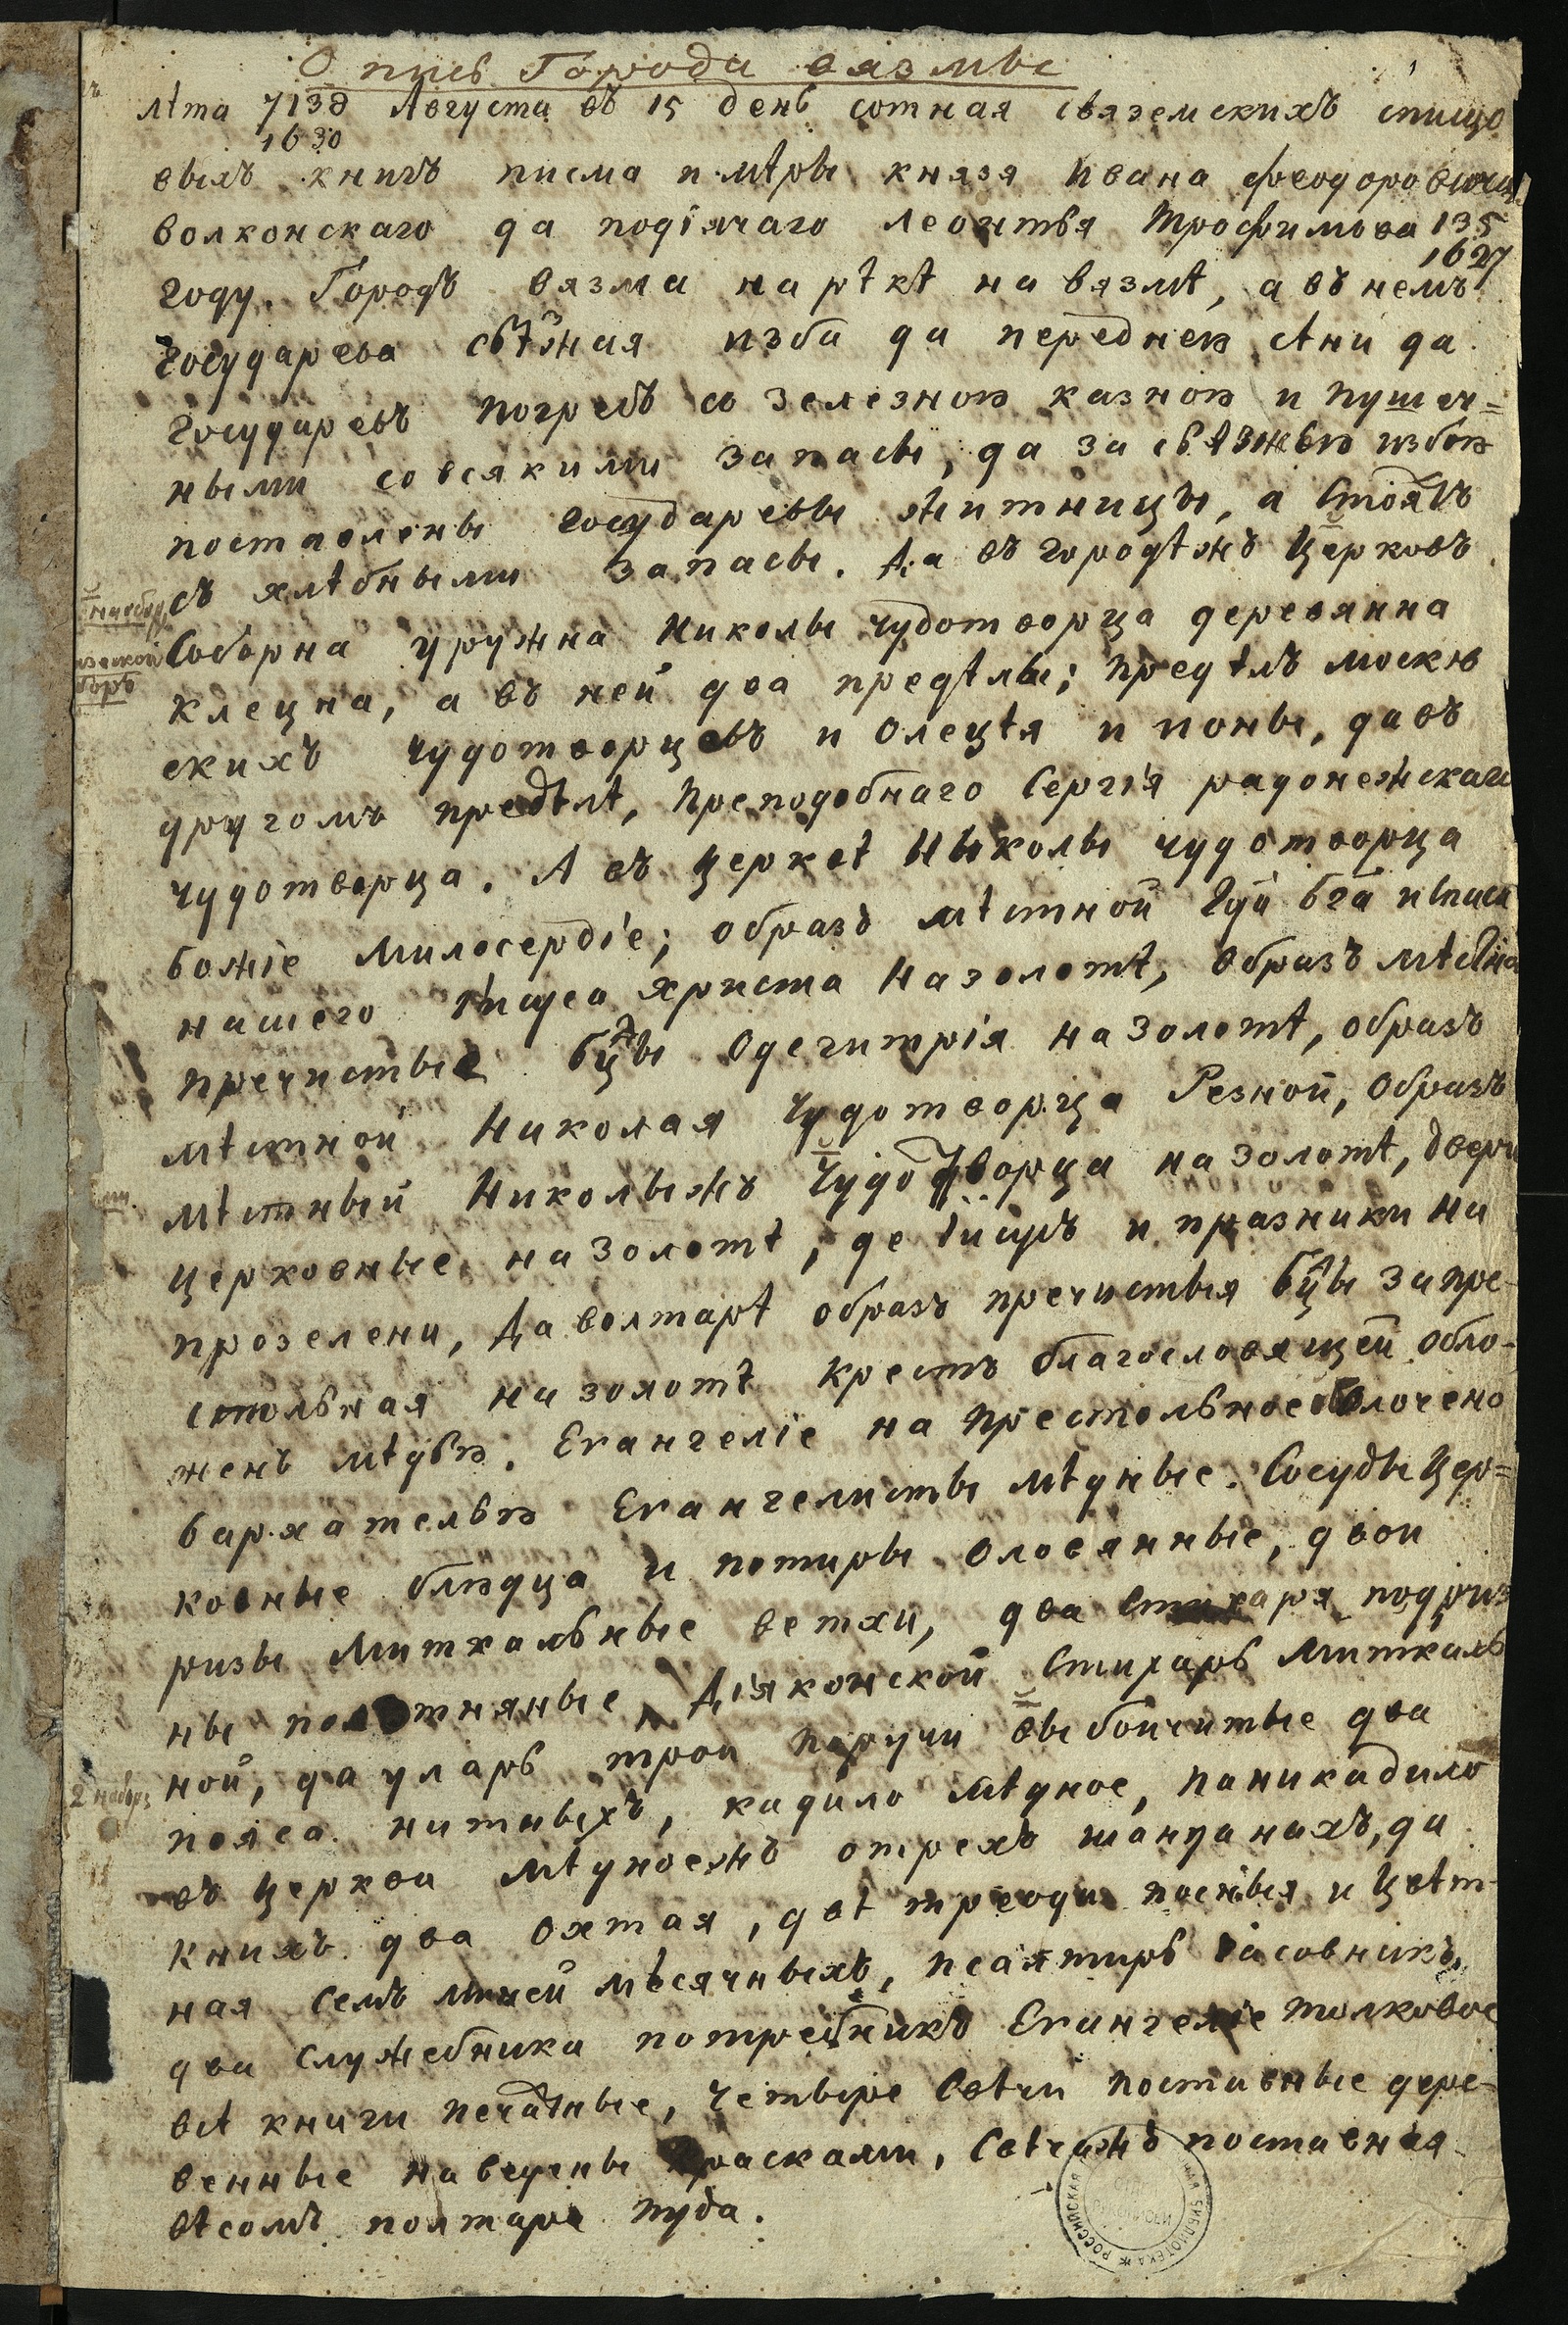 Опись Города вязмы
лѣта 7138 Августа въ 15 день сотная связемскихъ списцо
1630
выхъ книгъ писма и мѣры князя Ивана феодоровича
волконскаго да подіячаго леонтья Трофимова 135
1627
году. Городъ вязма на рѣкѣ на вязмѣ, а въ немъ
Государева съѣзжая изба да переднею сѣни да
Государевъ погребъ со зелезною казною и пушеч=
ными со всякими запасы, да за съѣзжею избою
поставлены государевы житницы, а стоятъ
съ хлѣбными запасы. Да въ городѣжъ Церковь
Соборна уружна Николы чудотворца деревянна
клецна, а въ ней два предѣлы; предѣлъ москов
скихъ чудотворцевъ и Олеѯѣя и ионы, да въ
другомъ предѣлѣ, Преподобнаго Сергія радонежскаго
чудотворца. А въ церквѣ Николы чудотворца
божіе Милосердіе; образъ мѣстной
нашего Іисуса христа на золотѣ, образъ мѣстно
пречистые бцы Одегитрія на Золотѣ, образъ
мѣстной Николая чудотворца Резной, образъ
мѣстный Николыжъ Чудотворца на золотѣ, двери
церковные на золотѣ, деісусъ и празники на
прозелени, Да волтарѣ образъ пречистыя бцы запре-
стольная на золотѣ крестъ благословящей обло-
женъ мѣдью. Евангеліе на престольное оболочено
бархателью Евангелисты мѣдные. Сосуды Цер=
ковные блюдца и потиры оловянные, двои
ризы миткальные ветхи, два стихаря подриз
ны полотняные, Діяконской Стихарь Миткаль
ной, да уларь трои поручи выбойчитые два
пояса нитныхъ, кадило мѣдное, паникадило
въ церкви мѣдноежъ отрехъ шанданахъ, да
книхъ два охтая, двѣ треоди посныя и Цвѣт-
ная семь миней мѣсячныхъ, псалтирь часовникъ,
два служебника потребникъ Евангеліе толковое
всѣ книги печатные, четыре свѣчи поставные дере-
венные наведены красками, свѣчажъ поставная
вѣсомъ полтара пуда.